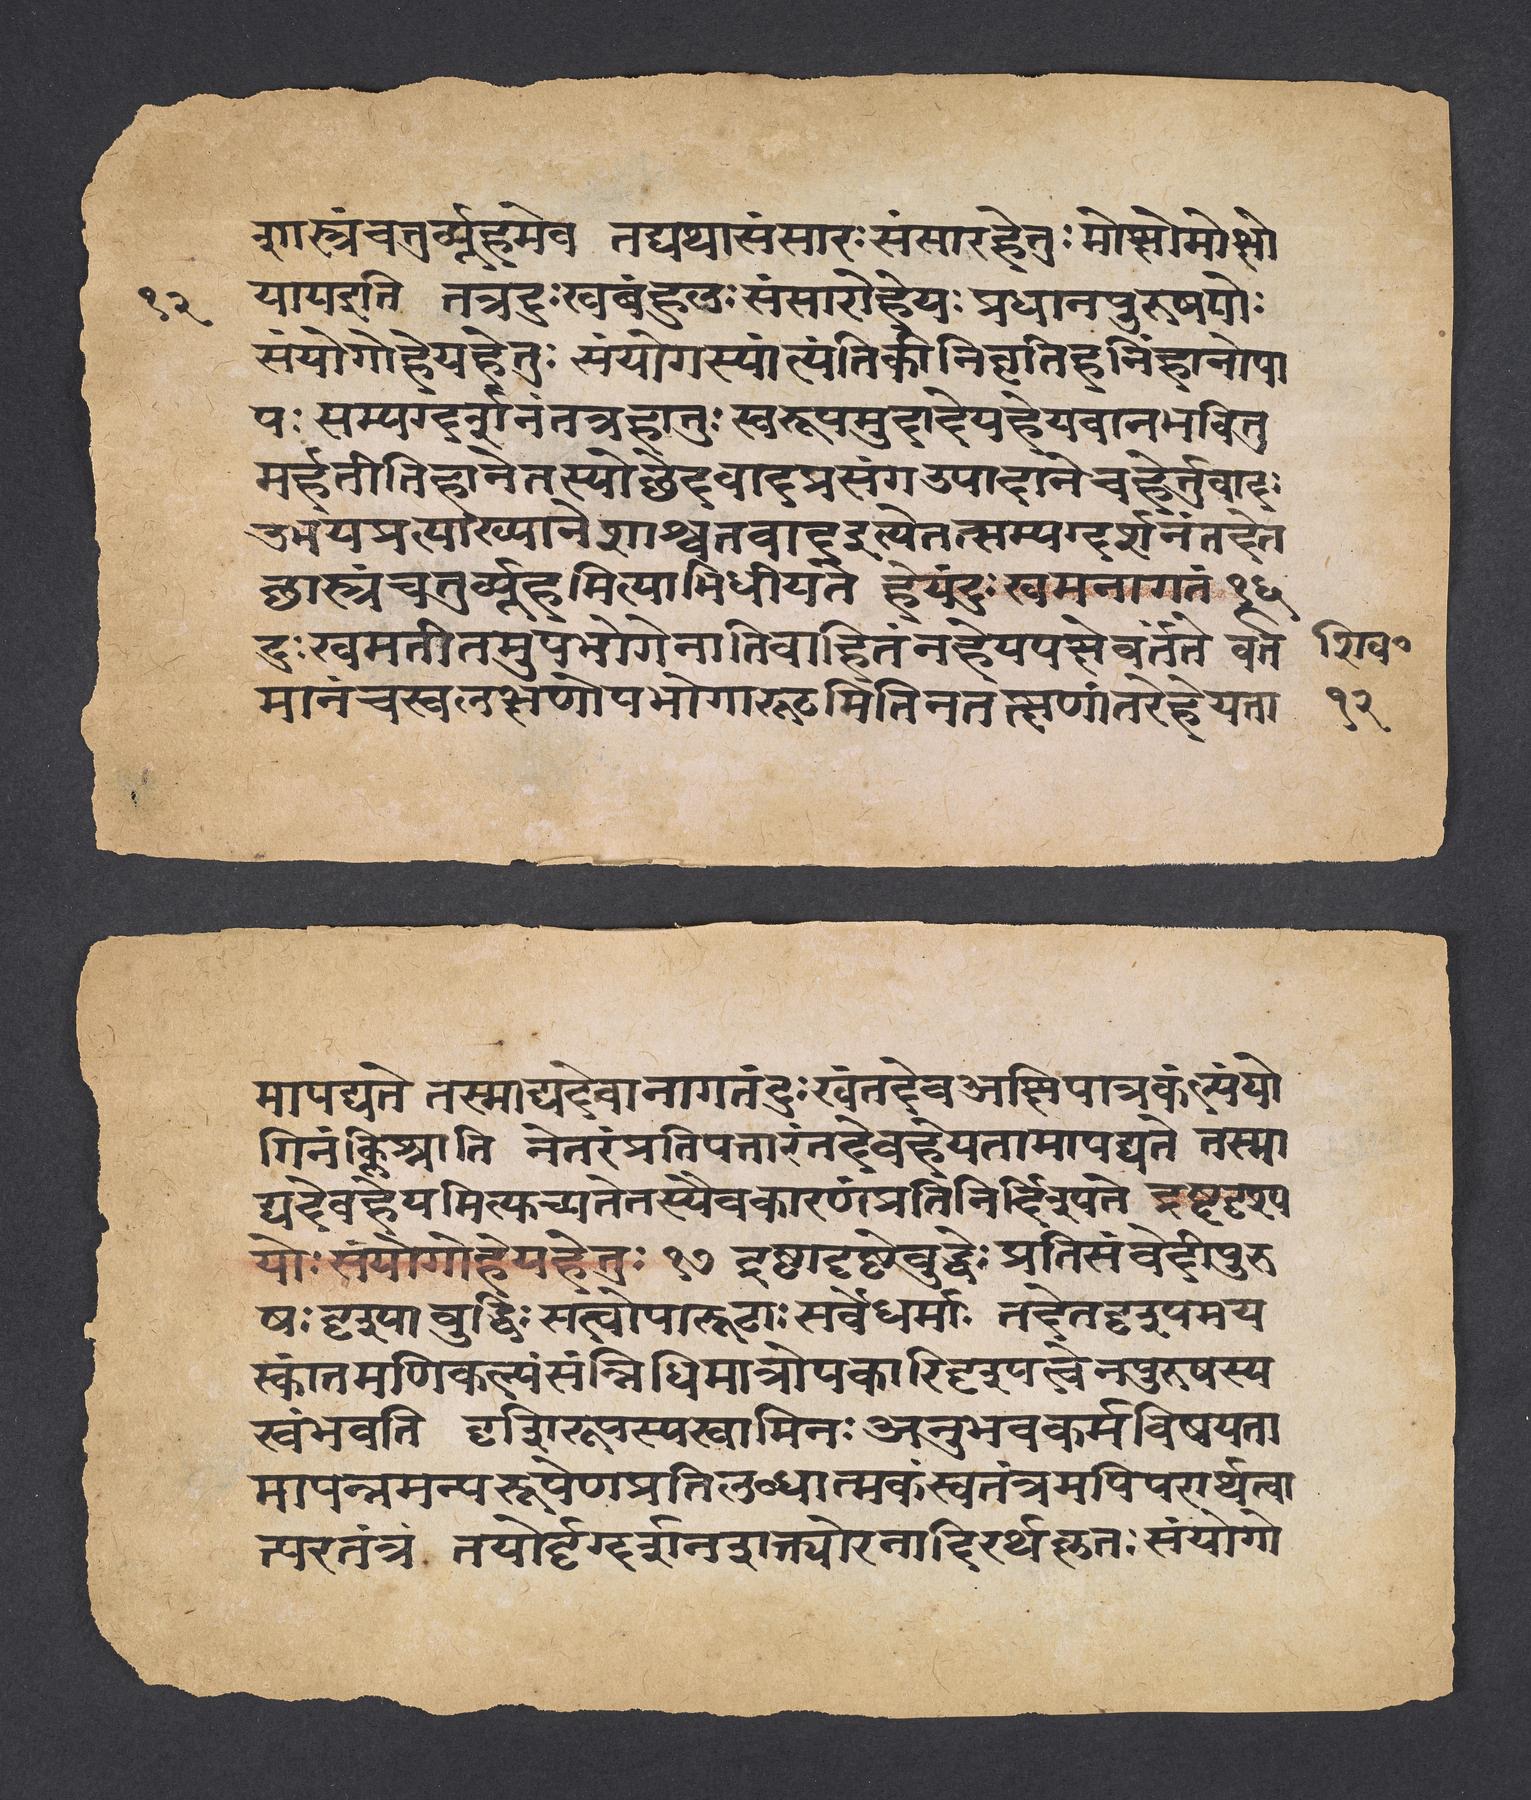 शास्त्रंचतुर्व्यूहमेव तद्यथासंसारःसंसारहेतुःमोक्षोमोक्षो
१२
यायइति तत्रदुःखबंहुलःसंसारोहेयःप्रधानपुरुषयोः
संयोगोहेयहेतुः संयोगस्यांत्यंतिकीनिवृतिर्हानिंहानोपा
यःसम्यग्दर्शनंतत्रहातुःस्वरूपमुदादेयहेयवानभवितु
मर्हतीतिहानेतस्योछेदवादप्रसंगउपादानेचहेर्तुवादः
उभयप्रत्याख्यानेशाश्वतवादइत्येतत्सम्यग्दर्शनंतदेत
छास्त्रंचतुर्व्यूहमित्याभिधीयते हेयंदुःखमनागतं १६
दुःखमतीतमुपभोगेनातिवाहितंनहेयपक्षेवर्तते वर्त
शिव॰
मानंचस्वलक्षणोपभोगारूठमितिनतत्क्षणांतरेहेयता
१२
मापद्यते तस्माद्यदेवानागतंदुःखंतदेवअक्षिपात्रकंल्पंयो
गिनंक्लिश्नाति नेतरंप्रतिपत्तारंतदेवहेयतामापद्यते तस्मा
द्यदेवहेयमित्फच्यतेतस्यैवकारणंप्रतिनिर्द्दिश्यते द्रष्टृदृश्य
योःसंयोगोहेयहेतुः १७ द्रष्टादृष्टेवुद्धेःप्रतिसंवेदीपुरु
षःदृश्यावुद्धिःसत्वोपारूढाःसर्वेधर्माः तदेतदृश्यमय
स्कांतमणिकल्पंसंन्निधिमात्रोपकारिदृश्यत्वेनपुरुषस्य
स्वंभवति दृशिरूपस्यस्वामिनःअनुभवकर्मविषयता
मापन्नमन्यरूपेणप्रतिलव्धात्मकंस्वतंत्रमपिपरार्थत्वा
त्परतंत्रं तयोर्दृग्दर्शनशत्त्योरनादिरर्थकृतःसंयोगो